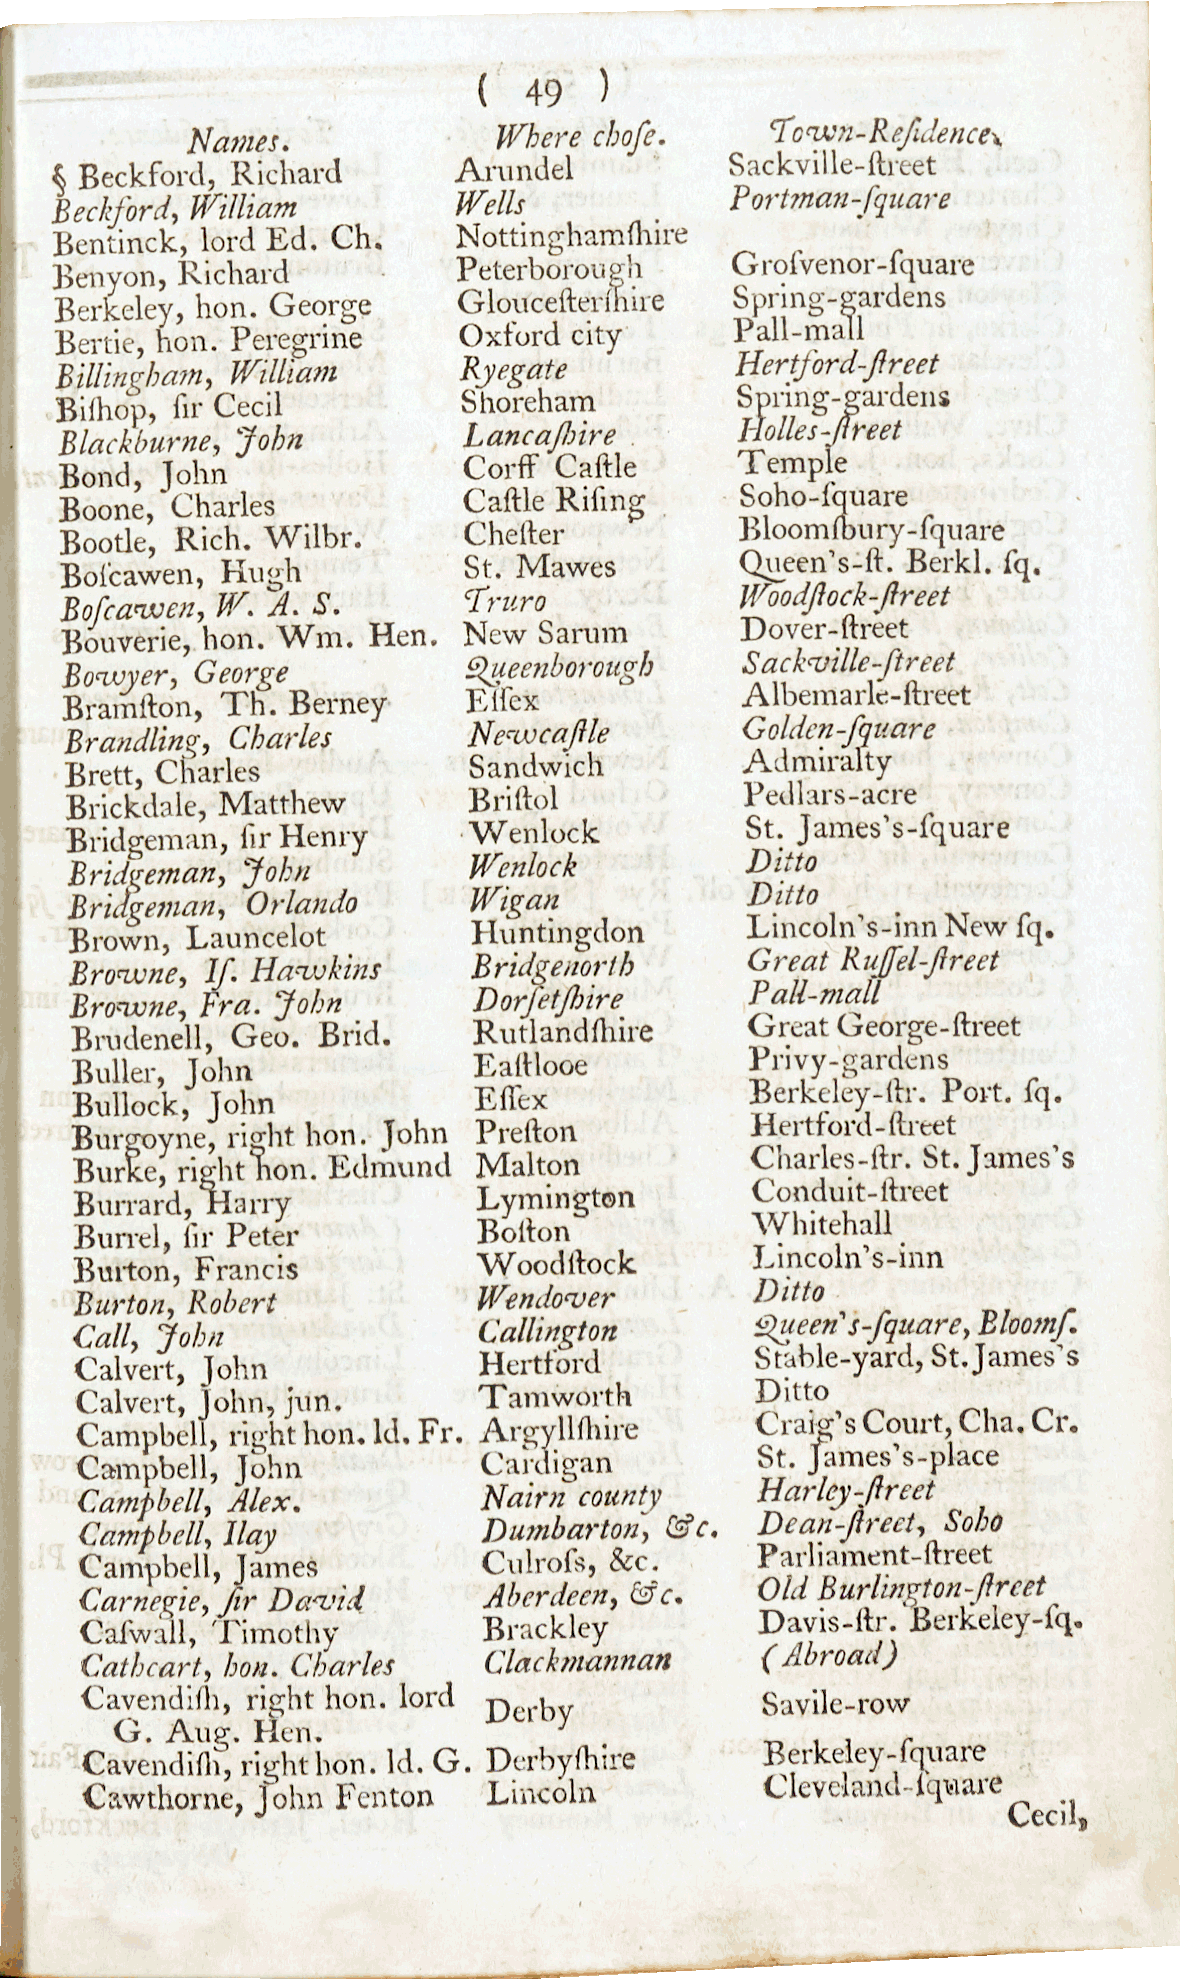 ( 49 )
Names. Where choſe. Town-Reſidence.
§ Beckford, Richard Arundel Sackville-ſtreet
Beckford, William Wells Portman-ſquare
Bentinck, lord Ed. Ch. Nottinghamſhire
Benyon, Richard Peterborough Groſvenor-ſquare
Berkeley, hon. George Glouceſterſhire Spring-gardens
Bertie, hon. Peregrine Oxford city Pall-mall
Billingham, William Ryegate Hertford-ſtreet
Biſhop, ſir Cecil Shoreham Spring-gardens
Blackburne, John Lancaſhire Holles-ſtreet
Bond, John Corff Caſtle Temple
Boone, Charles Caſtle Riſing Soho-ſquare
Bootle, Rich. Wilbr. Cheſter Bloomſbury-ſquare
Boſcawen, Hugh St. Mawes Queen's-ſt. Berkl. ſq.
Boſcawen, W. A. S. Truro Woodſtock-ſtreet
Bouverie, hon. Wm. Hen. New Sarum Dover-ſtreet
Bowyer, George Queenborough Sackville-ſtreet
Bramſton, Th. Berney Eſſex Albemarle-ſtreet
Brandling, Charles Newcaſtle Golden-ſquare
Brett, Charles Sandwich Admiralty
Brickdale, Matthew Briſtol Pedlars-acre
Bridgeman, ſir Henry Wenlock St. James's-ſquare
Bridgeman, John Wenlock Ditto
Bridgeman, Orlando Wigan Ditto
Brown, Launcelot Huntingdon Lincoln's-inn New ſq.
Browne, Iſ. Hawkins Bridgenorth Great Ruſſel-ſtreet
Browne, Fra. John Dorſetſhire Pall-mall
Brudenell, Geo. Brid. Rutlandſhire Great George-ſtreet
Buller, John Eaſtlooe Privy-gardens
Bullock, John Eſſex Berkeley-ſtr. Port. ſq.
Burgoyne, right hon. John Preſton Hertford-ſtreet
Burke, right hon. Edmund Malton Charles-ſtr. St. James's
Burrard, Harry Lymington Conduit-ſtreet
Burrel, ſir Peter Boſton Whitehall
Burton, Francis Woodſtock Lincoln's-inn
Burton, Robert Wendover Ditto
Call, John Callington Queen's-ſquare, Bloomſ.
Calvert, John Hertford Stable-yard, St. James's
Calvert, John, jun. Tamworth Ditto
Campbell, right hon. ld. Fr. Argyllſhire Craig's Court, Cha. Cr.
Campbell, John Cardigan St. James's-place
Campbell, Alex. Nairn county Harley-ſtreet
Campbell, Ilay Dumbarton, &c. Dean-ſtreet, Soho
Campbell, James Culroſs, &c. Parliament-ſtreet
Carnegie, ſir David Aberdeen, &c. Old Burlington-ſtreet
Caſwall, Timothy Brackley Davis-ſtr. Berkeley-ſq.
Cathcart, hon. Charles Clackmannan (Abroad)
Cavendiſh, right hon. lord
G. Aug. Hen. Derby Savile-row
Cavendiſh, right hon. ld. G. Derbyſhire Berkeley-ſquare
Cawthorne, John Fenton Lincoln Cleveland-ſquare
Cecil,